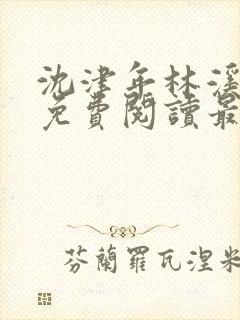 沈津年林溪
免費閱讀最
芬蘭羅瓦涅米